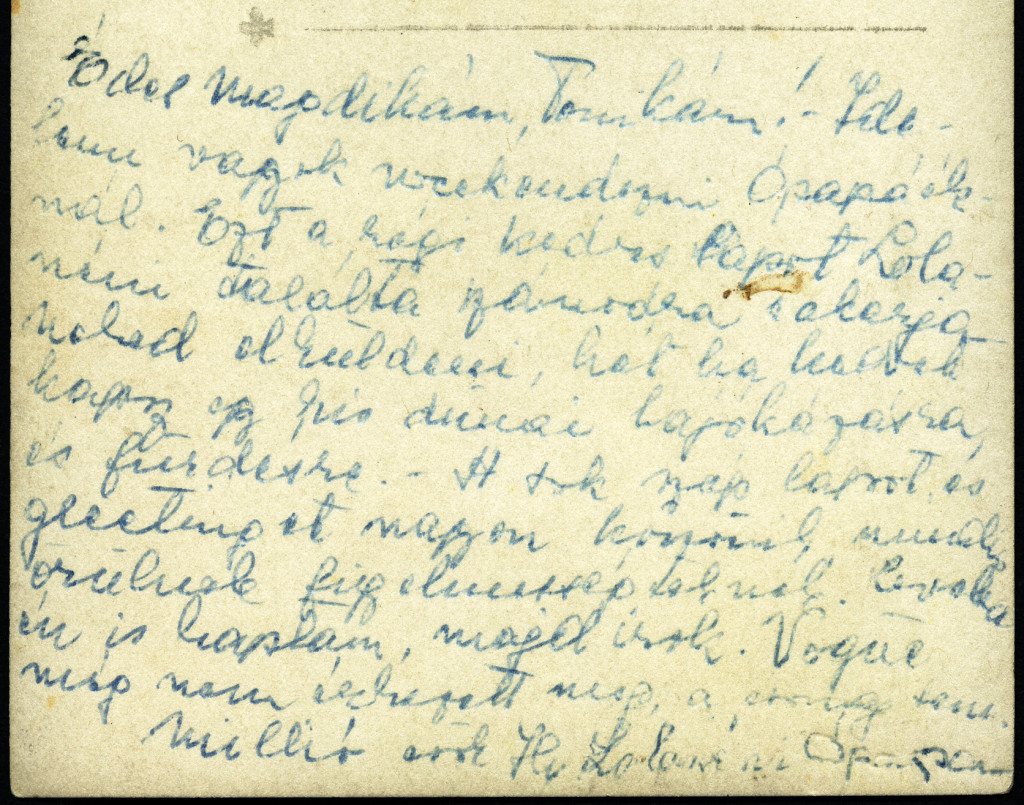 Édes Magdikám, Tomkám! - Ide-
lenn vagyok weekendezni Ópapáék-
nál. Ezt a régi kedves lapot Lola-
néni találta számodra s akarja
Neked elküldeni, hát ha kedvet
kapsz egy kis dunai hajókázásra,
és fürdésre. - A sok szép lapot és
greetinget nagyon köszönik, mindig
örülnek figyelmességteknek.
én is kaptam, majd írok. Vogue
még nem érkezett meg, a sem.
Millió csók Lolanéni Ópapa